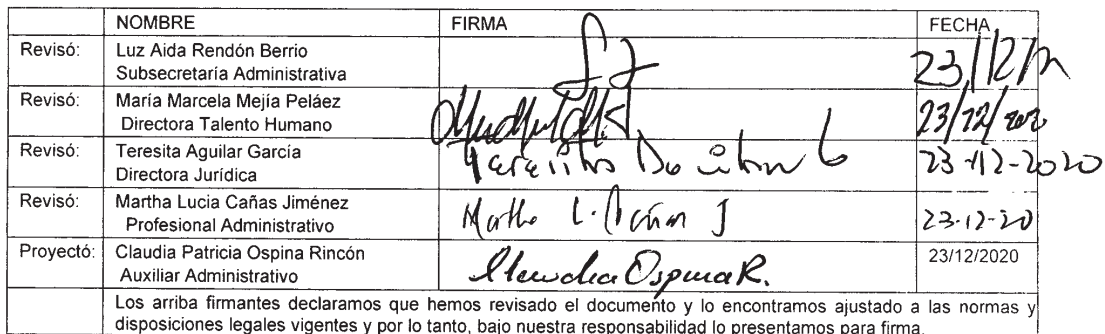 NOMBRE FIRMA FECHA
Revisó: Luz Aida Rendón Berrio
Subsecretaría Administrativa
23/12/
Revisó: María Marcela Mejía Peláez
Directora Talento Humano
23/12/
Revisó: Teresita Aguilar García
Directora Jurídica
23-12-2020
Revisó: Martha Lucia Cañas Jiménez
Profesional Administrativo
Martha L. Cañas J 23-12-20
Proyectó: Claudia Patricia Ospina Rincón
Auxiliar Administrativo
Claudia Ospina R. 23/12/2020
Los arriba firmantes declaramos que hemos revisado el documento y lo encontramos ajustado a las normas y
disposiciones legales vigentes y por lo tanto, bajo nuestra responsabilidad lo presentamos para firma.